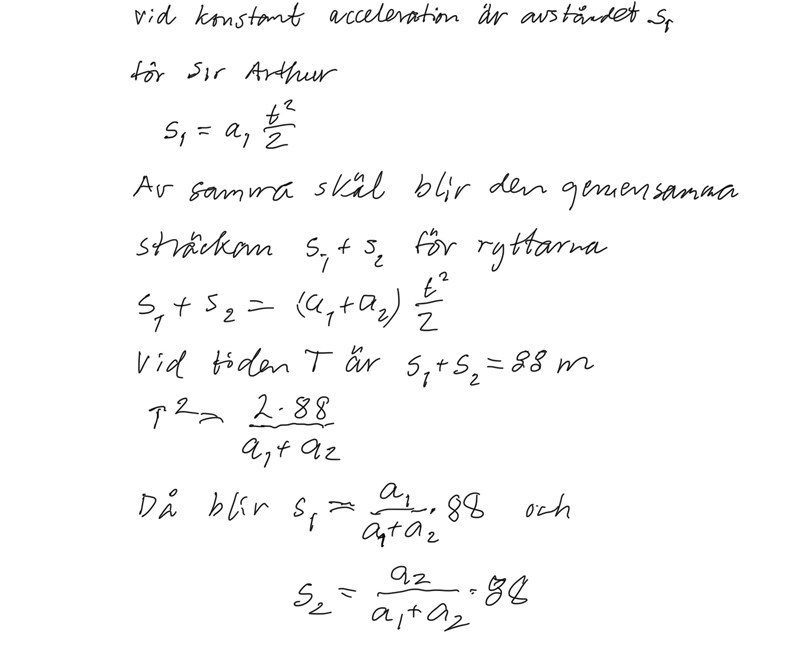 vid konstant acceleration är avståndet s₁
för Sir Arthur
s₁ = a₁ t²/2
Av samma skäl blir den gemensamma
sträckan s₁ + s₂ för ryttarna
s₁ + s₂ = (a₁+a₂) t²/2
Vid tiden T är s₁+s₂ = 88 m
T² = 2·88/(a₁+a₂)
Då blir s₁ = a₁/(a₁+a₂) · 88 och
s₂ = a₂/(a₁+a₂) · 88